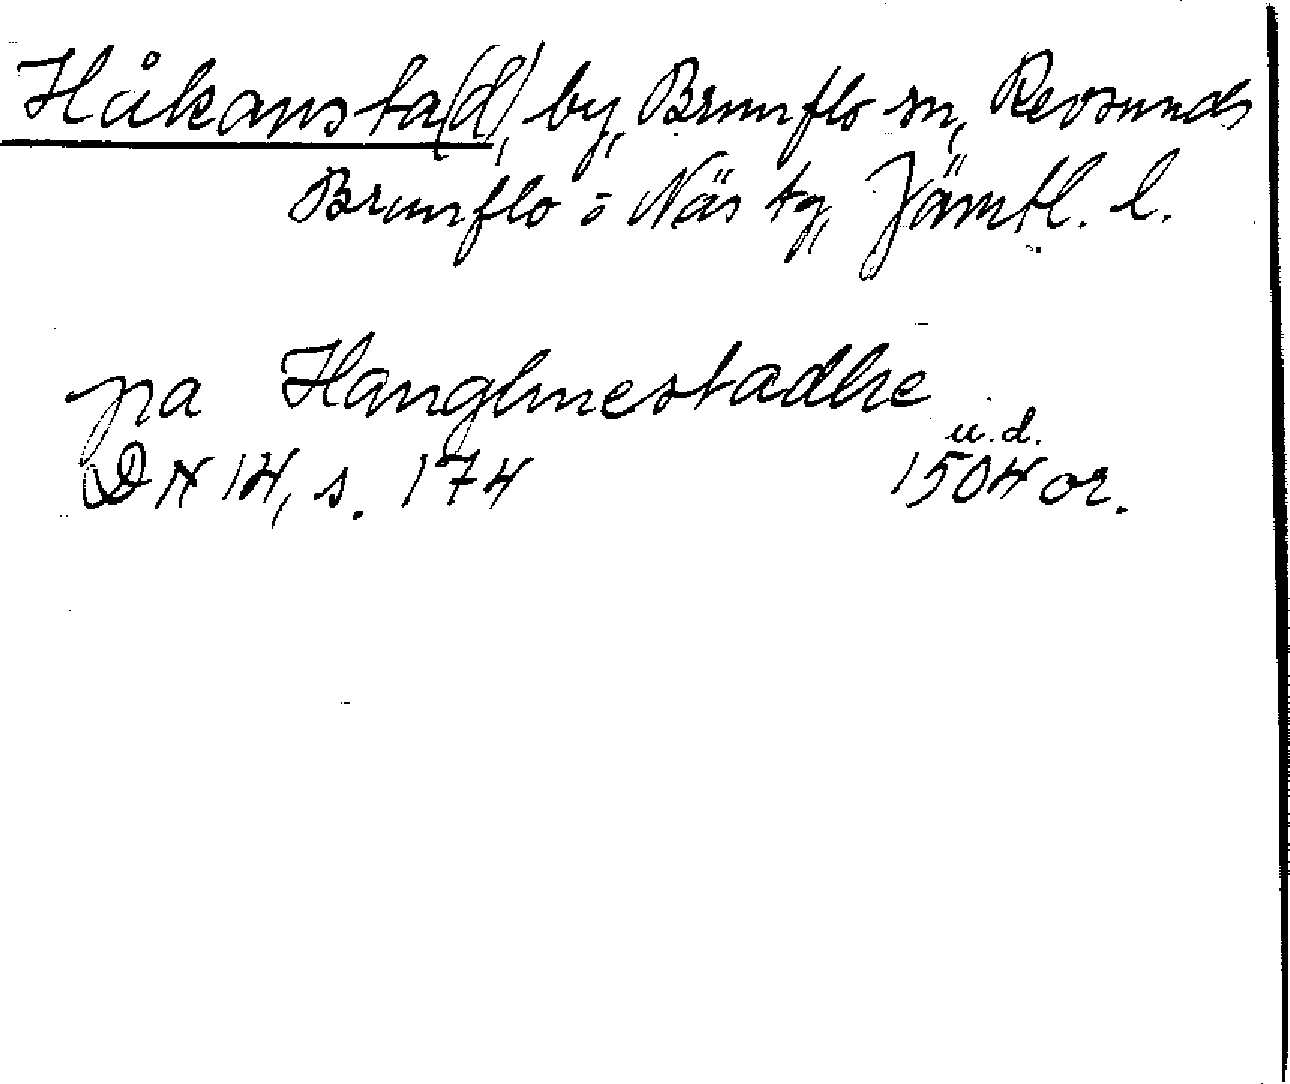 Håkansta(d), by, Brunflo sn, Revsunds
Brunflo o Näs tg, Jämtl. l.
pa Hanghnestadhe
u.d.
DN 14, s. 174 1504 or.